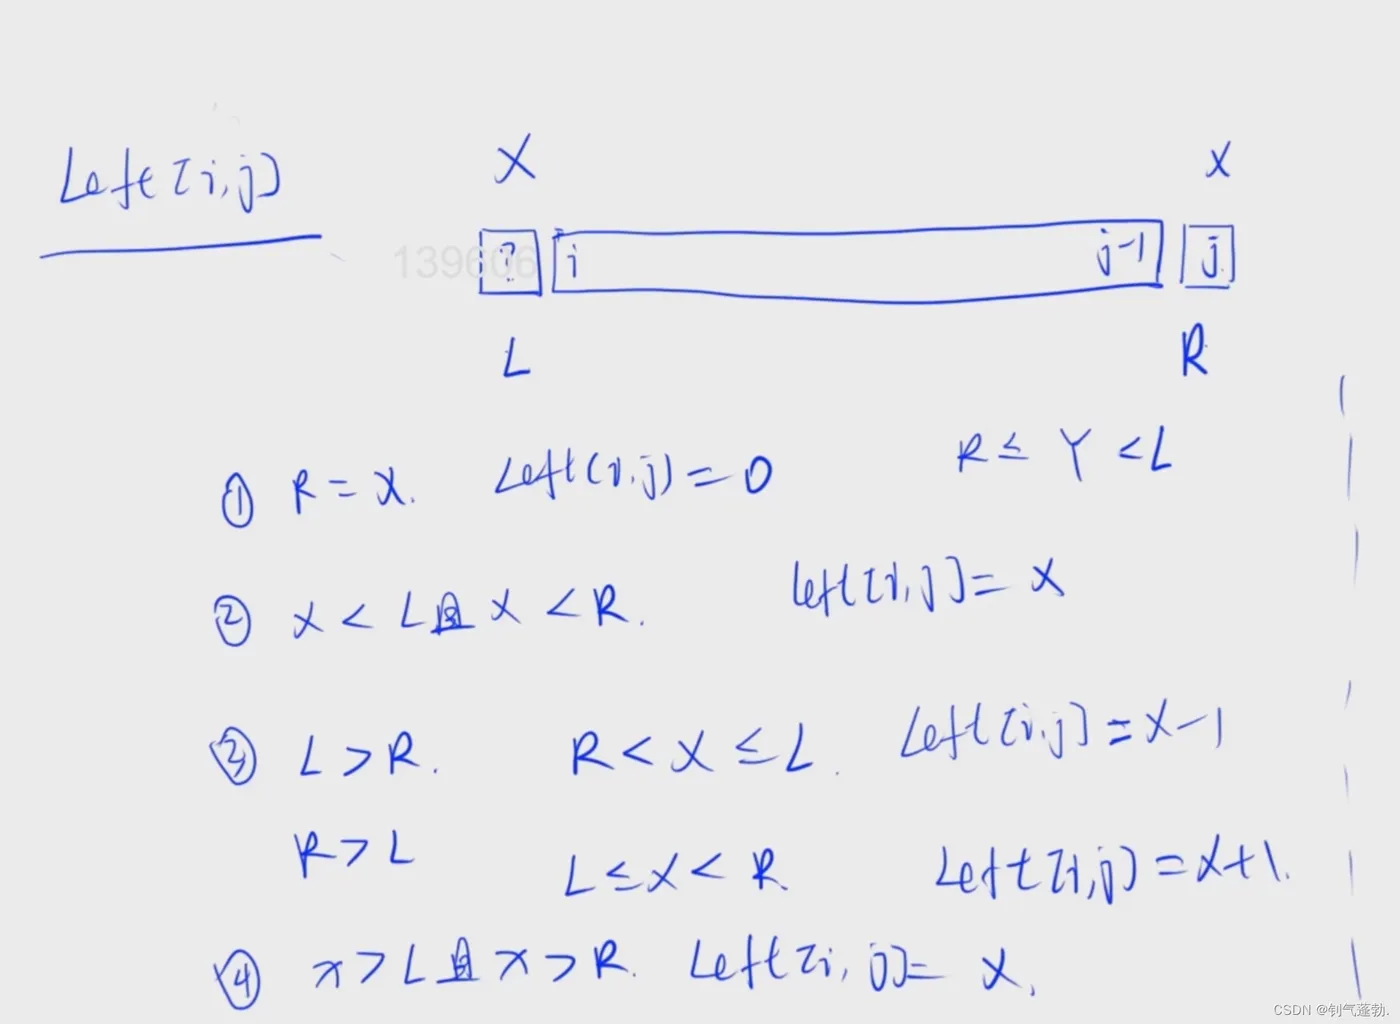 Left[i,j]
X X
139606
? i j-1 j
L R
① R = X. Left(i,j) = 0 R ≤ Y < L
② X < L且 X < R. Left[i,j] = X
③ L > R. R < X ≤ L. Left[i,j] = X-1
R > L L ≤ X < R Left[i,j] = X+1.
④ x > L且 x > R. Left[i,j] = X.
CSDN @钊气蓬勃.